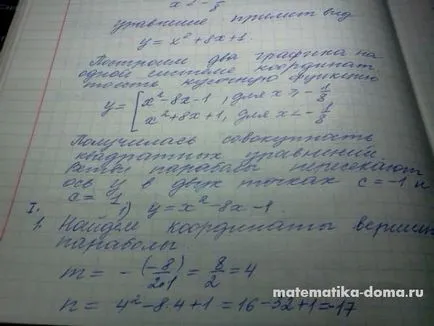 x < - 1/8
уравнение примет вид
y = x² + 8x + 1.
Построим два графика на
одной системе координат
кусочную функцию
y = [ x² - 8x - 1, для x ≥ - 1/8
x² + 8x + 1, для x < - 1/8
Получилась совокупность
квадратных уравнений
Ветви параболы пересекают
ось y в двух точках c = -1 и
c = 1
I. 1) y = x² - 8x - 1.
1. Найдем координаты вершины
параболы
m = - (-8)/2·1 = 8/2 = 4
n = 4² - 8·4 + 1 = 16 - 32 + 1 = -17
matematika-doma.ru